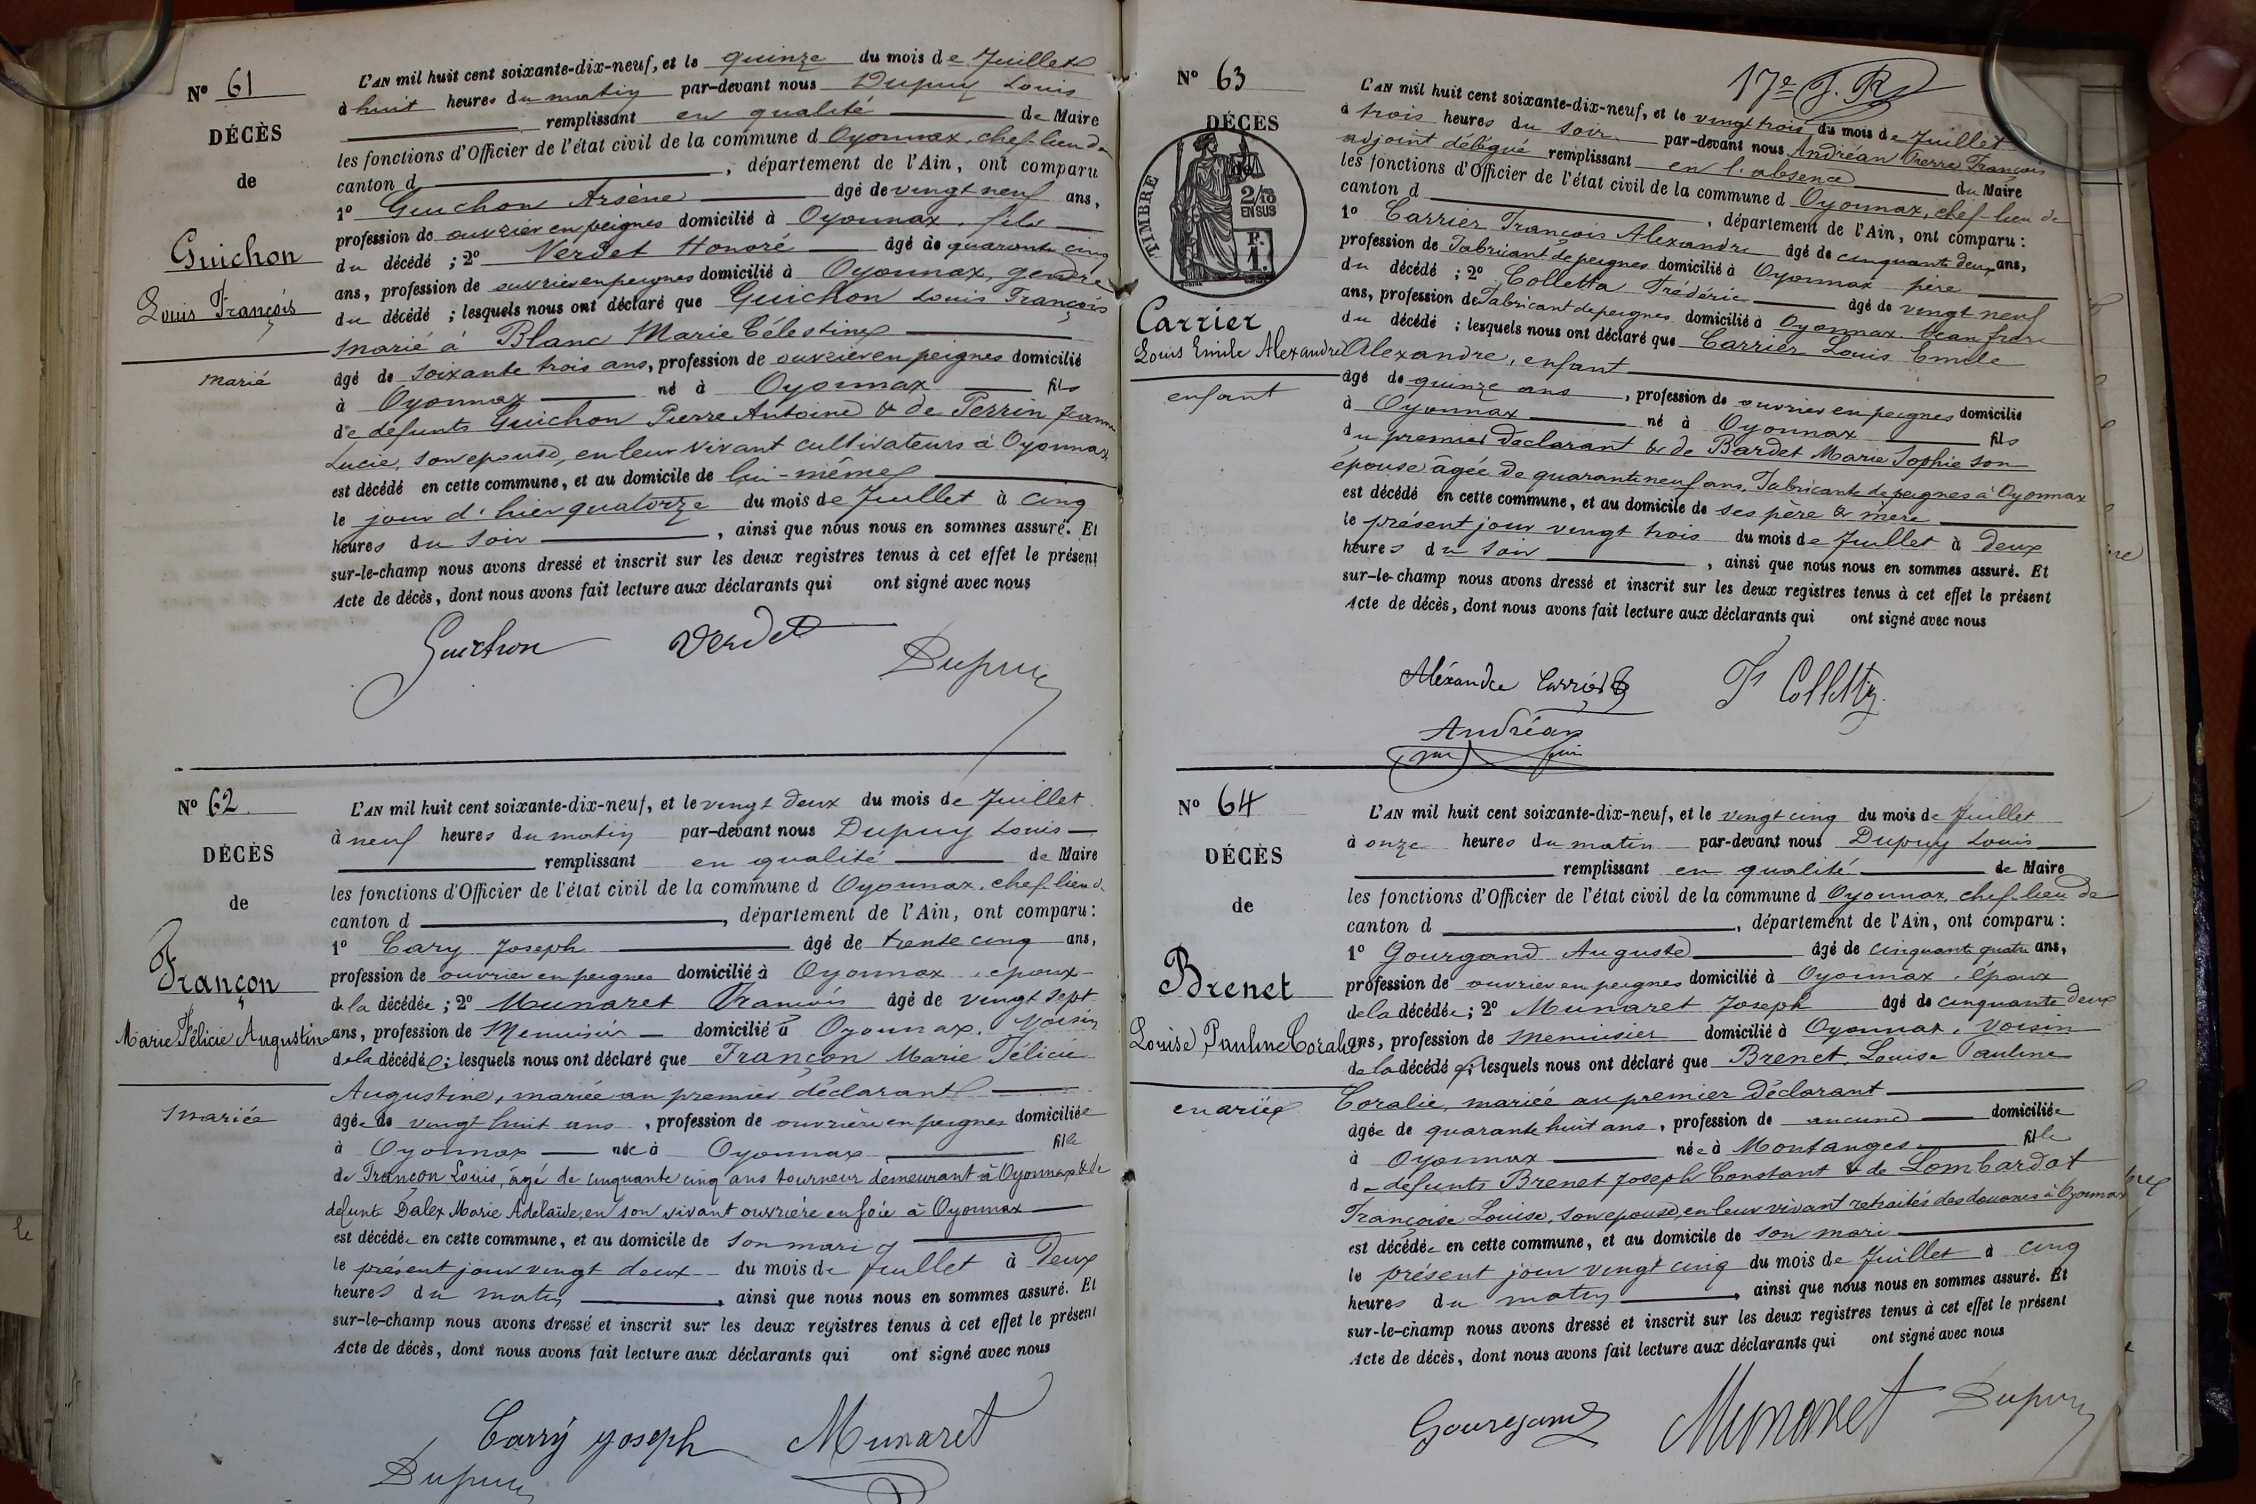 N° 61
DÉCÈS
de
Guichon
Louis François
marié
L'AN mil huit cent soixante-dix-neuf, et le quinze du mois de Juillet
à huit heures du matin par-devant nous Dupuy Louis
remplissant en qualité de Maire
les fonctions d'Officier de l'état civil de la commune d Oyonnax, chef-lieu de
canton d , département de l'Ain, ont comparu
1° Guichon Arsène âgé de vingt neuf ans,
profession de ouvrier en peignes domicilié à Oyonnax, fils
du décédé ; 2° Verdet Honoré âgé de quarante cinq
ans, profession de ouvrier en peignes domicilié à Oyonnax, gendre
du décédé ; lesquels nous ont déclaré que Guichon Louis François
marié à Blanc Marie Célestine
âgé de soixante trois ans, profession de ouvrier en peignes domicilié
à Oyonnax né à Oyonnax fils
de défunts Guichon Pierre Antoine & de Perrin Jeanne
Lucie, son épouse, en leur vivant cultivateurs à Oyonnax
est décédé en cette commune, et au domicile de lui-même
le jour d'hier quatorze du mois de Juillet à cinq
heures du soir , ainsi que nous nous en sommes assuré. Et
sur-le-champ nous avons dressé et inscrit sur les deux registres tenus à cet effet le présent
Acte de décès, dont nous avons fait lecture aux déclarants qui ont signé avec nous
Guichon Verdet
Dupuy
N° 62
DÉCÈS
de
Françon
Marie Félicie Augustine
mariée
L'AN mil huit cent soixante-dix-neuf, et le vingt deux du mois de Juillet
à neuf heures du matin par-devant nous Dupuy Louis
remplissant en qualité de Maire
les fonctions d'Officier de l'état civil de la commune d Oyonnax, chef-lieu d
canton d , département de l'Ain, ont comparu :
1° Cary Joseph âgé de trente cinq ans,
profession de ouvrier en peignes domicilié à Oyonnax, époux
de la décédée ; 2° Munaret François âgé de vingt sept
ans, profession de Menuisier domicilié à Oyonnax. Voisin
de la décédée ; lesquels nous ont déclaré que Françon Marie Félicie
Augustine, mariée au premier déclarant
âgée de vingt huit ans , profession de ouvrière en peignes domiciliée
à Oyonnax née à Oyonnax fille
de Françon Louis, âgé de cinquante cinq ans tourneur demeurant à Oyonnax & de
defunte Dalex Marie Adelaïde, en son vivant ouvrière en soie à Oyonnax
est décédée en cette commune, et au domicile de son mari
le présent jour vingt deux du mois de Juillet à Deux
heures du matin , ainsi que nous nous en sommes assuré. Et
sur-le-champ nous avons dressé et inscrit sur les deux registres tenus à cet effet le présent
Acte de décès, dont nous avons fait lecture aux déclarants qui ont signé avec nous
Carry Joseph Munaret
Dupuy
17e
N° 63
DÉCÈS
de
TIMBRE
2/10
EN SUS
F.
1.
Carrier
Louis Emile Alexandre
enfant
L'AN mil huit cent soixante-dix-neuf, et le vingt trois du mois de Juillet
à trois heures du soir par-devant nous Andréan Pierre François
adjoint délégué remplissant en l'absence du Maire
les fonctions d'Officier de l'état civil de la commune d Oyonnax, chef-lieu de
canton d , département de l'Ain, ont comparu :
1° Carrier François Alexandre âgé de cinquante deux ans,
profession de Fabricant de peignes domicilié à Oyonnax père
du décédé ; 2° Colletta Frédéric âgé de vingt neuf
ans, profession de Fabricant de peignes domicilié à Oyonnax, beau frère
du décédé ; lesquels nous ont déclaré que Carrier Louis Emile
Alexandre, enfant
âgé de quinze ans , profession de ouvrier en peignes domicilié
à Oyonnax né à Oyonnax fils
du premier déclarant & de Bardet Marie Sophie son
épouse âgée de quarante neuf ans, Fabricante de peignes à Oyonnax
est décédé en cette commune, et au domicile de ses père & mère
le présent jour vingt trois du mois de Juillet à deux
heures du soir , ainsi que nous nous en sommes assuré. Et
sur-le-champ nous avons dressé et inscrit sur les deux registres tenus à cet effet le présent
Acte de décès, dont nous avons fait lecture aux déclarants qui ont signé avec nous
Aléxandre Carrier
Andréan
N° 64
DÉCÈS
de
Brenet
Louise Pauline Coralie
mariée
L'AN mil huit cent soixante-dix-neuf, et le vingt cinq du mois de Juillet
à onze heures du matin par-devant nous Dupuy Louis
remplissant en qualité de Maire
les fonctions d'Officier de l'état civil de la commune d Oyonnax, chef-lieu de
canton d , département de l'Ain, ont comparu :
1° Gourgand Auguste âgé de cinquante quatre ans,
profession de ouvrier en peignes domicilié à Oyonnax, époux
de la décédée ; 2° Munaret Joseph âgé de cinquante deux
ans, profession de menuisier domicilié à Oyonnax, voisin
de la décédée ; lesquels nous ont déclaré que Brenet, Louise Pauline
Coralie, mariée au premier déclarant
âgée de quarante huit ans, profession de aucune domiciliée
à Oyonnax née à Montanges fille
de défunts Brenet Joseph Constant & de Lombardot
Françoise Louise, son épouse, en leur vivant retraités des douanes à Oyonnax
est décédée en cette commune, et au domicile de son mari
le présent jour vingt cinq du mois de Juillet à cinq
heures du matin , ainsi que nous nous en sommes assuré. Et
sur-le-champ nous avons dressé et inscrit sur les deux registres tenus à cet effet le présent
Acte de décès, dont nous avons fait lecture aux déclarants qui ont signé avec nous
Gourgand Munaret Dupuy